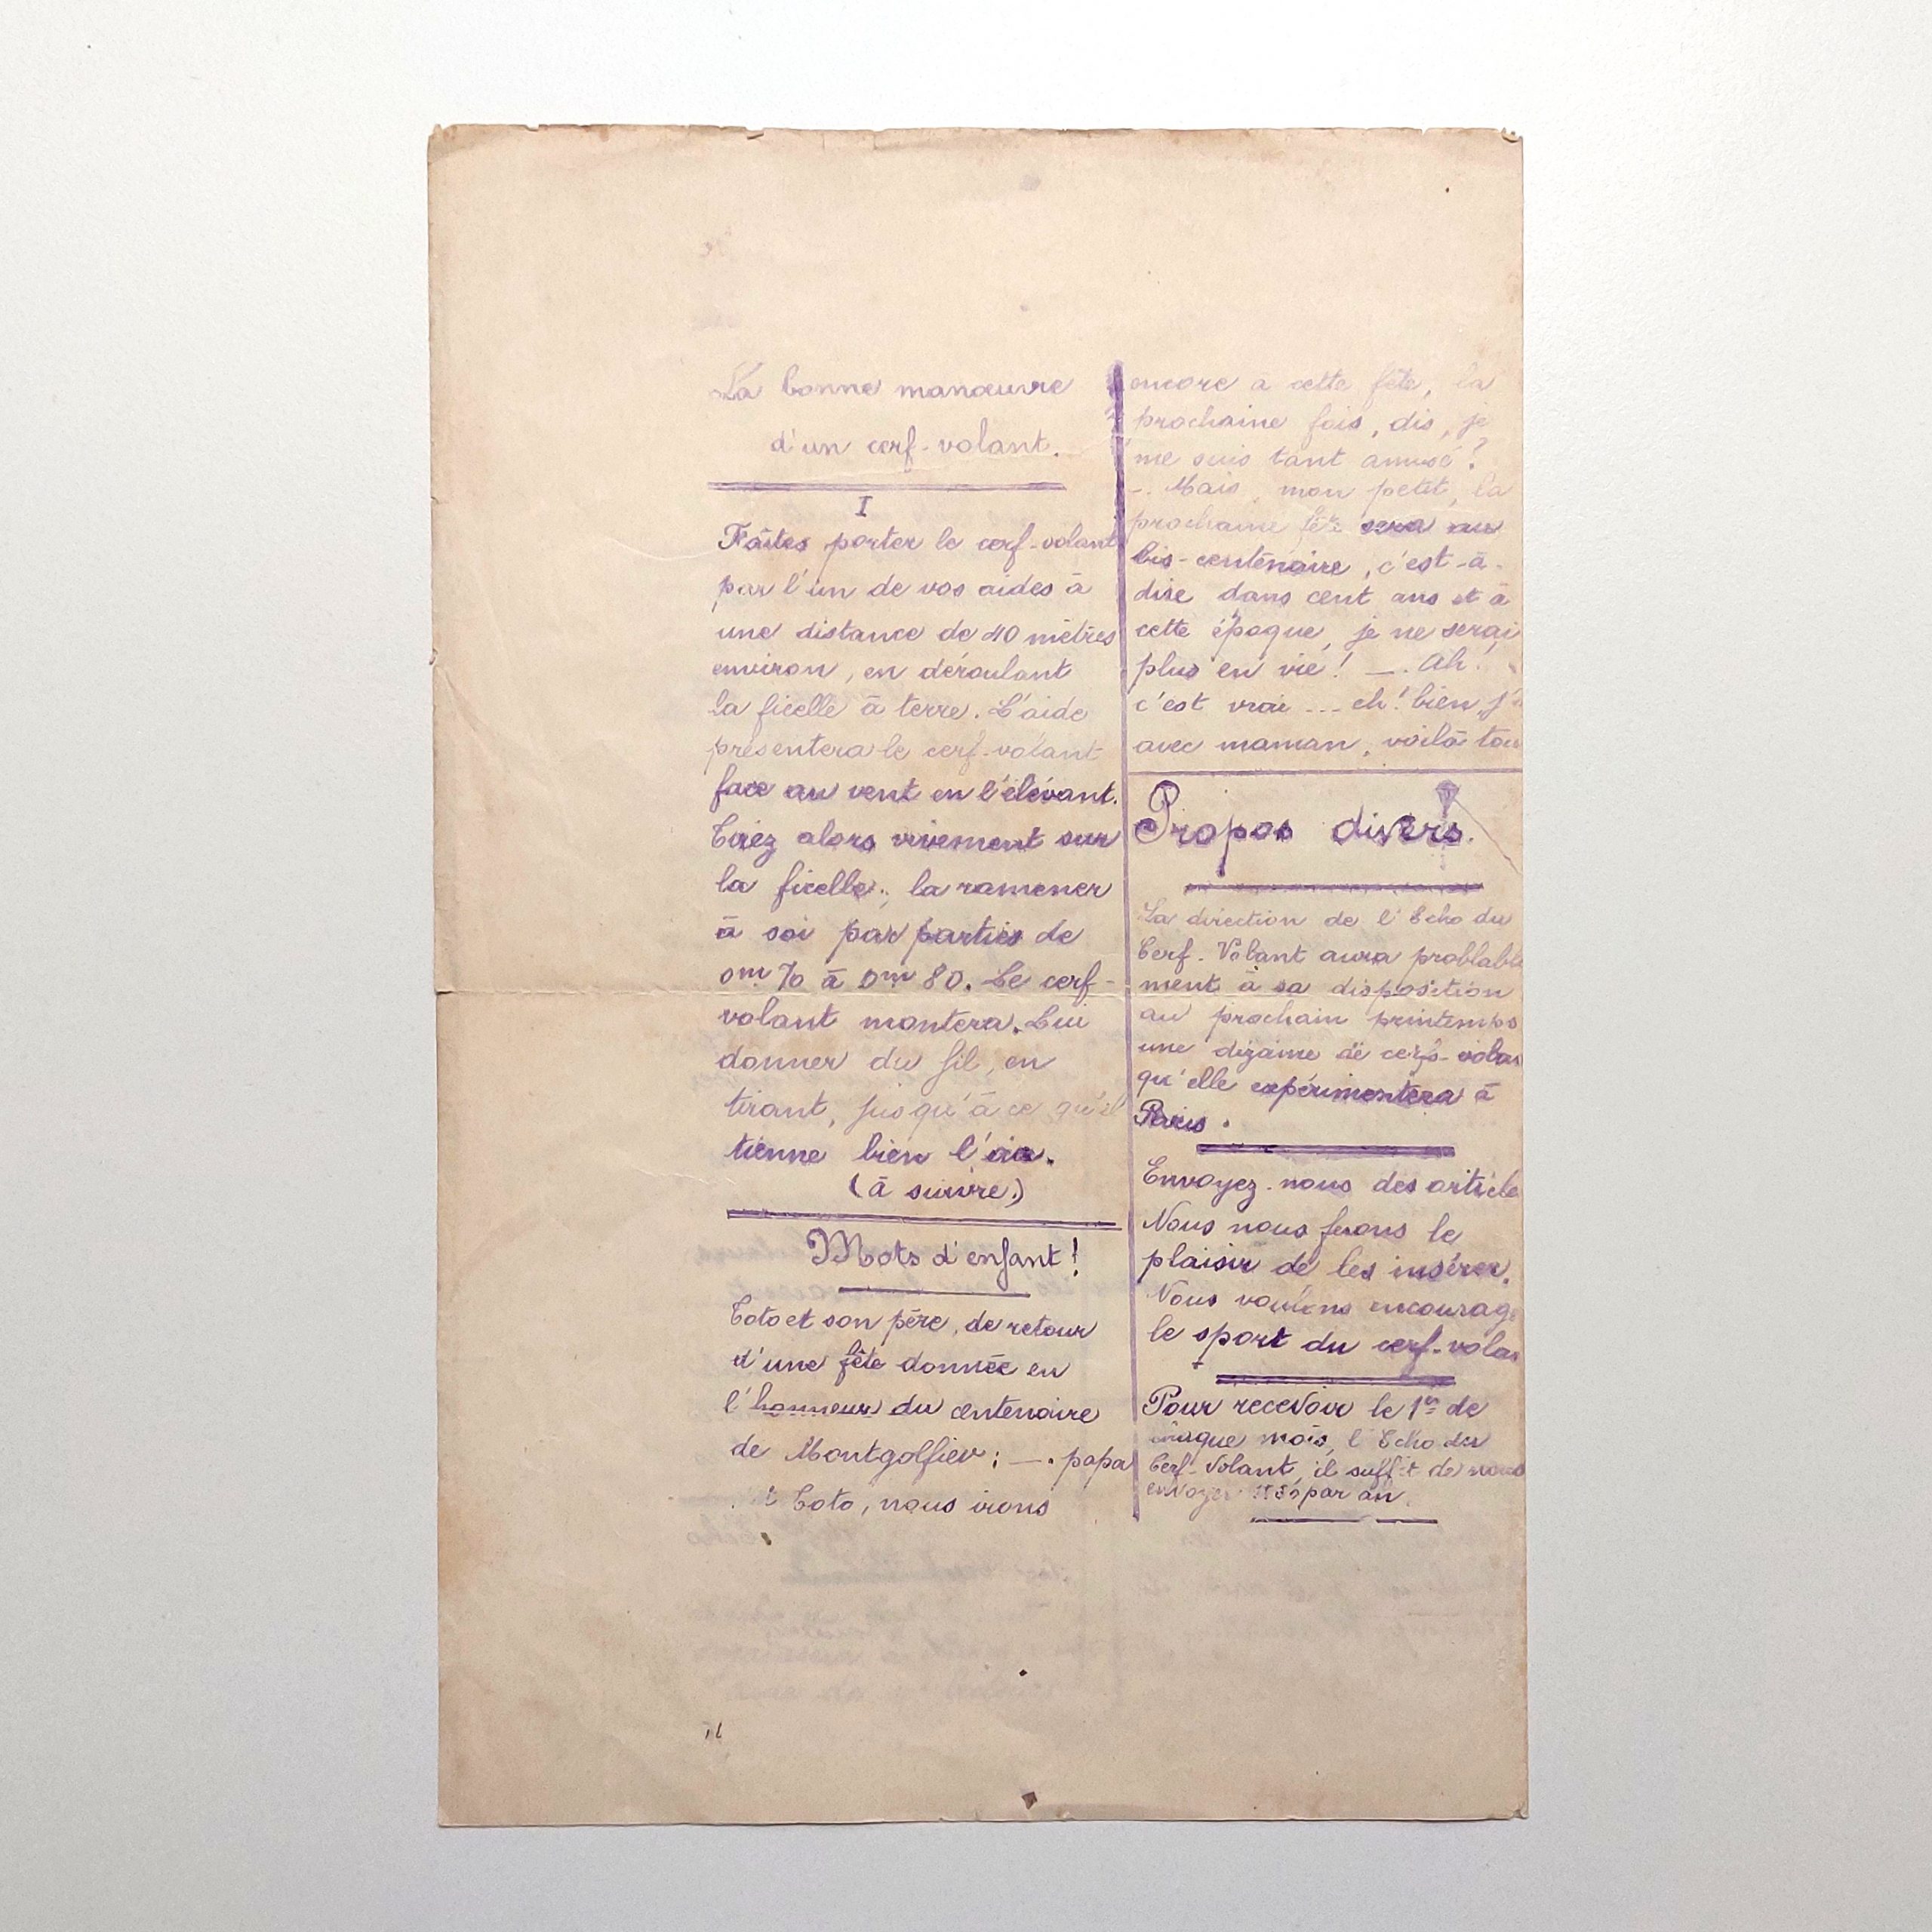 La bonne manœuvre
d'un cerf-volant.
I
Faites porter le cerf-volant
par l'un de vos aides à
une distance de 40 mètres
environ, en déroulant
la ficelle à terre. L'aide
présentera le cerf-volant
face au vent en l'élevant.
Tirez alors vivement sur
la ficelle; la ramener
à soi par parties de
0m 70 à 0m 80. Le cerf-
volant montera. Lui
donner du fil, en
tirant, jusqu'à ce qu'il
tienne bien l'air.
(à suivre.)
Mots d'enfant!
Toto et son père, de retour
d'une fête donnée en
l'honneur du centenaire
de Montgolfier: —. papa
Toto, nous irons
encore à cette fête, la
prochaine fois, dis, je
me suis tant amusé?
-. Mais, mon petit, la
prochaine fête sera au
bis-centenaire, c'est-à-
dire dans cent ans et à
cette époque, je ne serai
plus en vie! —. Ah!
c'est vrai ... eh! bien, j'i
avec maman, voilà tou
Propos divers.
La direction de l'Echo du
Cerf-Volant aura problable
ment à sa disposition
au prochain printemps
une dizaine de cerfs-volan
qu'elle expérimentera à
Paris.
Envoyez-nous des article
Nous nous ferons le
plaisir de les insérer.
Nous voulons encourage
le sport du cerf-volan
Pour recevoir le 1er de
chaque mois, l'Echo du
Cerf-Volant, il suffit de nous
envoyer par an.